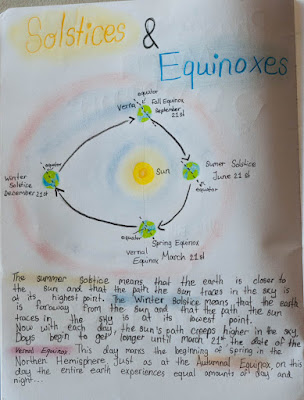 Solstices &
Equinoxes
equator
Verna
Fall Equinox
September
21st
equator
Winter
Solstice
December 21st
Sun
Sumer Solstice
June 21st
equator
equator
Spring Equinox
Vernal
Equinox March 21st
The summer solstice means that the earth is closer to
the sun and that the path the sun traces in the sky is
at its highest point. The Winter Solstice means, that the earth
is faraway from the sun and that the path the sun
traces in, the sky is at its lowest point.
Now with each day, the sun's path creeps higher in the sky
Days begin to get longer until march 21st, the date of the
Vernal Equinox This day marks the beginning of spring in the
Northern Hemisphere, Just as at the Autumnal Equinox, on this
day the entire earth experiences equal amounts of day and
night...